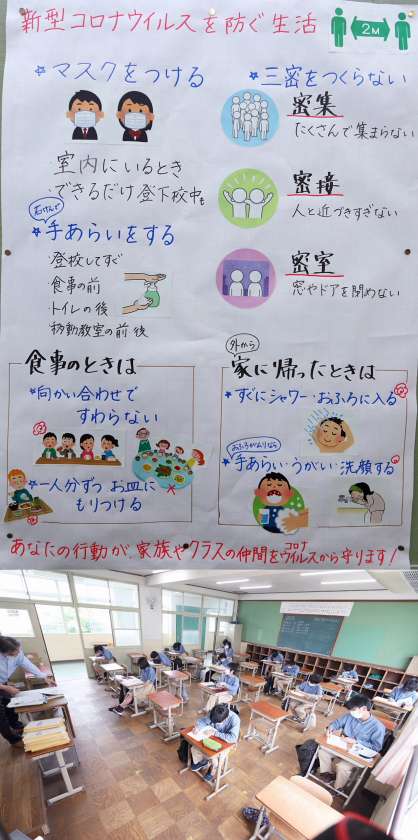 新型コロナウイルスを防ぐ生活
2M
☆マスクをつける
室内にいるとき
できるだけ登下校中も
石けんで
☆手あらいをする
登校してすぐ
食事の前
トイレの後
移動教室の前・後
☆三密をつくらない
密集
たくさんで集まらない
密接
人と近づきすぎない
密室
窓やドアを閉めない
食事のときは
☆向かい合わせで
すわらない
☆一人分ずつお皿に
もりつける
外から
家に帰ったときは
☆すぐにシャワー・おふろに入る
おふろがムリなら
☆手あらい・うがい・洗顔する
あなたの行動が、家族やクラスの仲間をウイルスから守ります!
コロナ